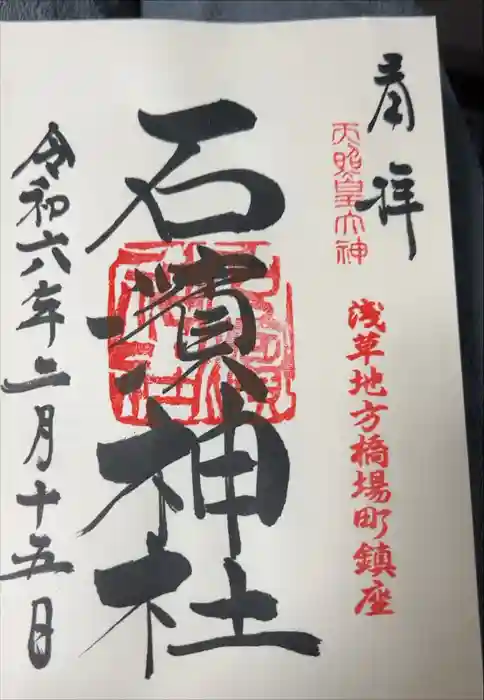 奉拝
天照皇大神
浅草地方橋場町鎮座
石濱神社
令和六年二月十五日